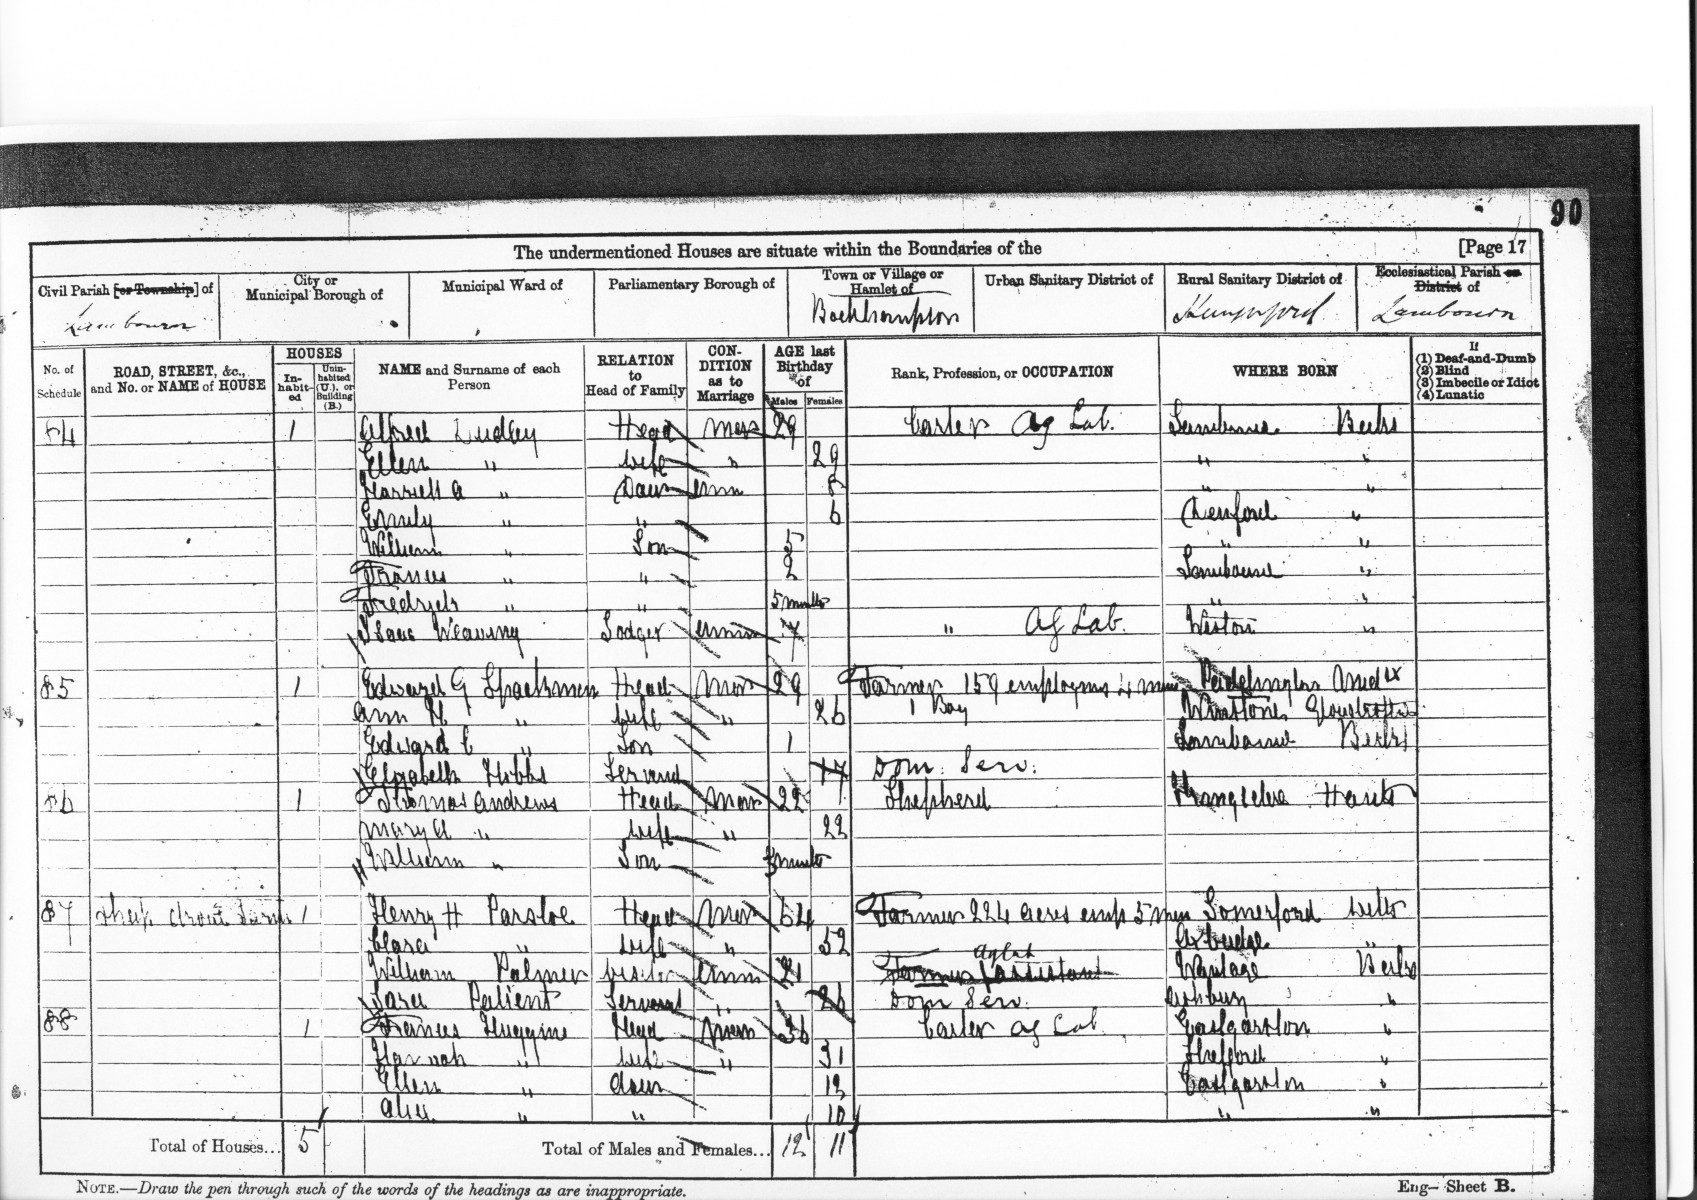 90
The undermentioned Houses are situate within the Boundaries of the [Page 17
Civil Parish [or Township] of
City or Municipal Borough of
Municipal Ward of
Parliamentary Borough of
Town or Village or Hamlet of
Urban Sanitary District of
Rural Sanitary District of
Ecclesiastical Parish or District of
Lambourn Bockhampton Hungerford Lambourn
No. of Schedule
ROAD, STREET, &c., and No. or NAME of HOUSE
HOUSES
In-habit-ed
Unin-habited (U.), or Building (B.)
NAME and Surname of each Person
RELATION to Head of Family
CON-DITION as to Marriage
AGE last Birthday of
Males Females
Rank, Profession, or OCCUPATION
WHERE BORN
If
(1) Deaf-and-Dumb
(2) Blind
(3) Imbecile or Idiot
(4) Lunatic
84 1 Alfred Head Mar 29 Carter Ag Lab. Lambourne Berks
Ellen " wife " 29 " "
Harriett A " Daur Unm 8 " "
Emily " " 6 "
William " Son 5 " "
Frances " " 2 Lambourne "
Fredrick " " 5 months " "
Isaac Weaving Lodger Unm " Ag Lab. Weston "
85 1 Edward G Spackman Head Mar 29 Farmer 159 employing 4 men Paddington Middx
Ann H " wife " 26 1 Boy Gloucestershire
Edward C " Son 1 Lambourne Berks
Elizabeth Hobbs Servant 17 Dom. Serv.
86 1 Thomas Andrews Head Mar 22 Shepherd Hants
Mary A " wife " 22
William " Son months
87 Sheep drove farm 1 Henry H Parsloe Head Mar 64 Farmer 224 acres emp 5 men Somerford Wilts
Clara " wife " 52 "
William Palmer visitor Unm 21 Farmer assistant Ag Lab Wantage Berks
Sara Patient Servant " 26 Dom Serv. Ashbury "
88 1 Frances Huggins Head Mar 36 Carter Ag Lab Eastgarston "
Hannah " wife " 31 Shefford "
Ellen " daur 12 Eastgarston "
Alice " " 10 " "
Total of Houses... 5 Total of Males and Females... 12 11
NOTE.—Draw the pen through such of the words of the headings as are inappropriate.
Eng— Sheet B.